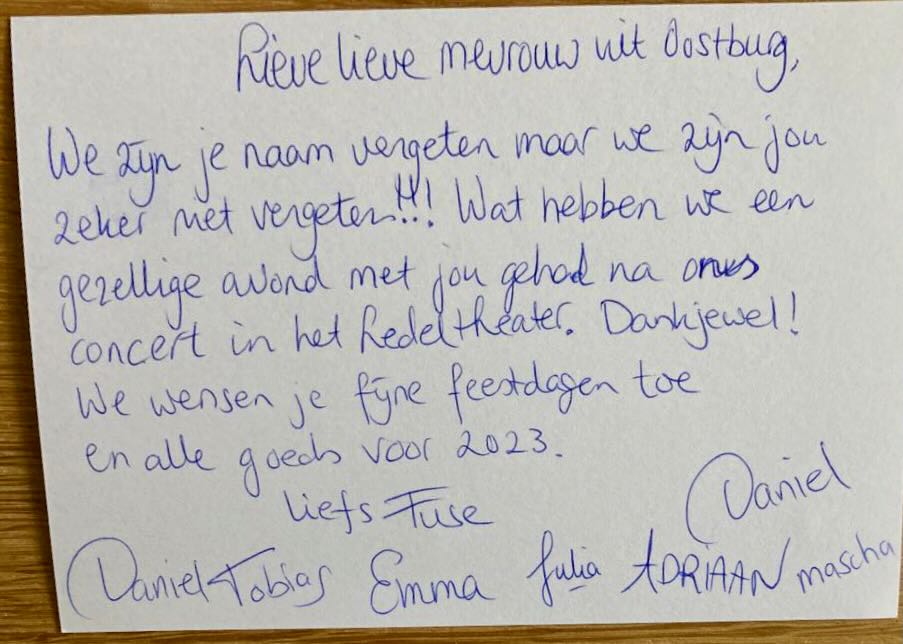 Lieve lieve mevrouw uit Oostburg,
We zijn je naam vergeten maar we zijn jou
zeker niet vergeten!!! Wat hebben we een
gezellige avond met jou gehad na ons
concert in het Ledeltheater. Dankjewel!
We wensen je fijne feestdagen toe
en alle goeds voor 2023.
Liefs Fuse
Daniel
Daniel Tobias Emma Julia ADRIAAN mascha